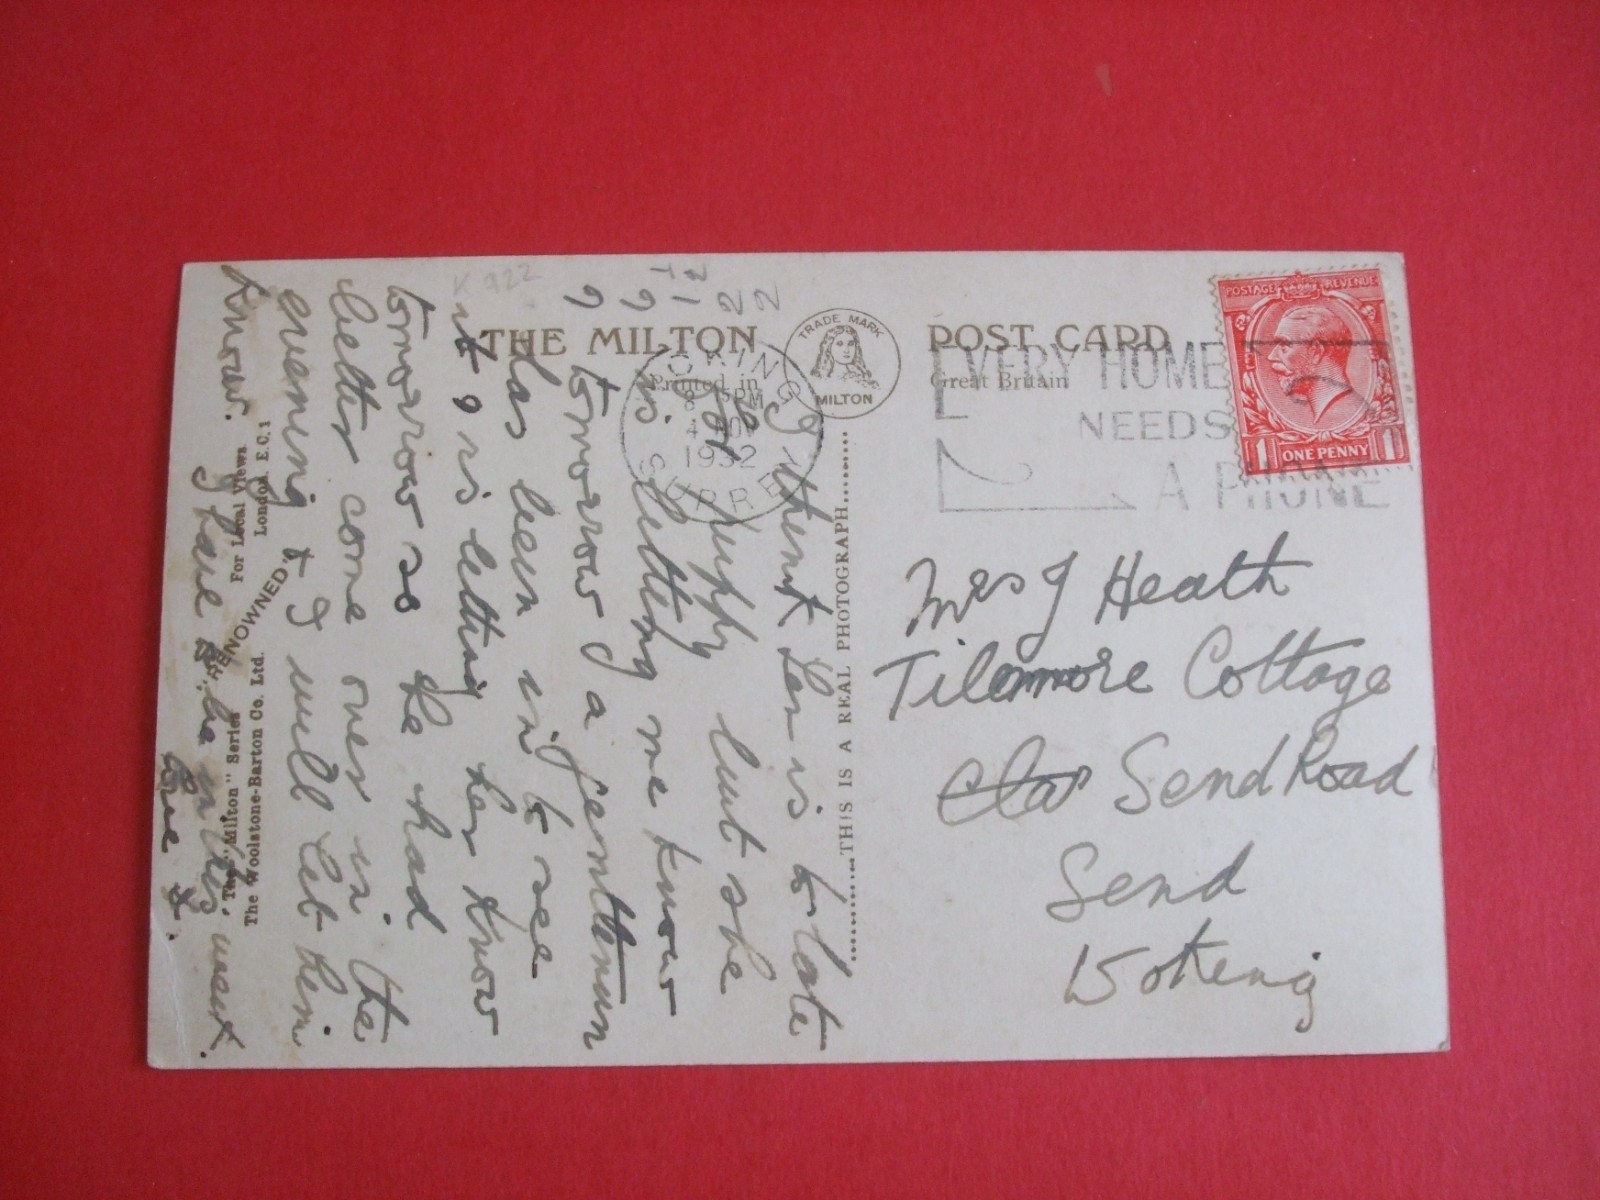 K 922
THE MILTON
TRADE MARK
MILTON
POST CARD
Printed in
Great Britain
WOKING
SURREY
8 15PM
4 NOV
1932
EVERY HOME
NEEDS
A PHONE
POSTAGE REVENUE
ONE PENNY
Mrs J Heath
Tilemore Cottage
Send Road
Send
Woking
THIS IS A REAL PHOTOGRAPH
I think Len is to late
for puppy but she
is letting me know
tomorrow a gentleman
has been in to see
it & is letting her know
tomorrow so he had
better come over in the
evening & I will let him
know. I have to be in this week.
love
The "Milton" Series
"RENOWNED"
For Local Views
The Woolstone-Barton Co. Ltd. London. E.C.1